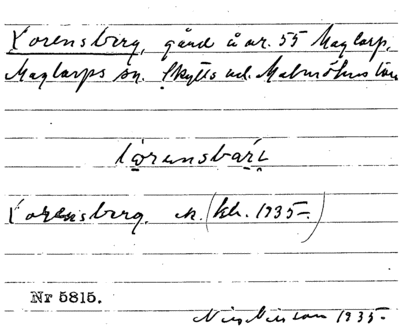 Lorensberg, gård å nr. 55 Maglarp,
Maglarps sn. Skytts hd. Malmöhus län
lorensbarj
Lorensberg. K. (kh. 1935-)
Nr 5815.
Nils Nilsson 1935-